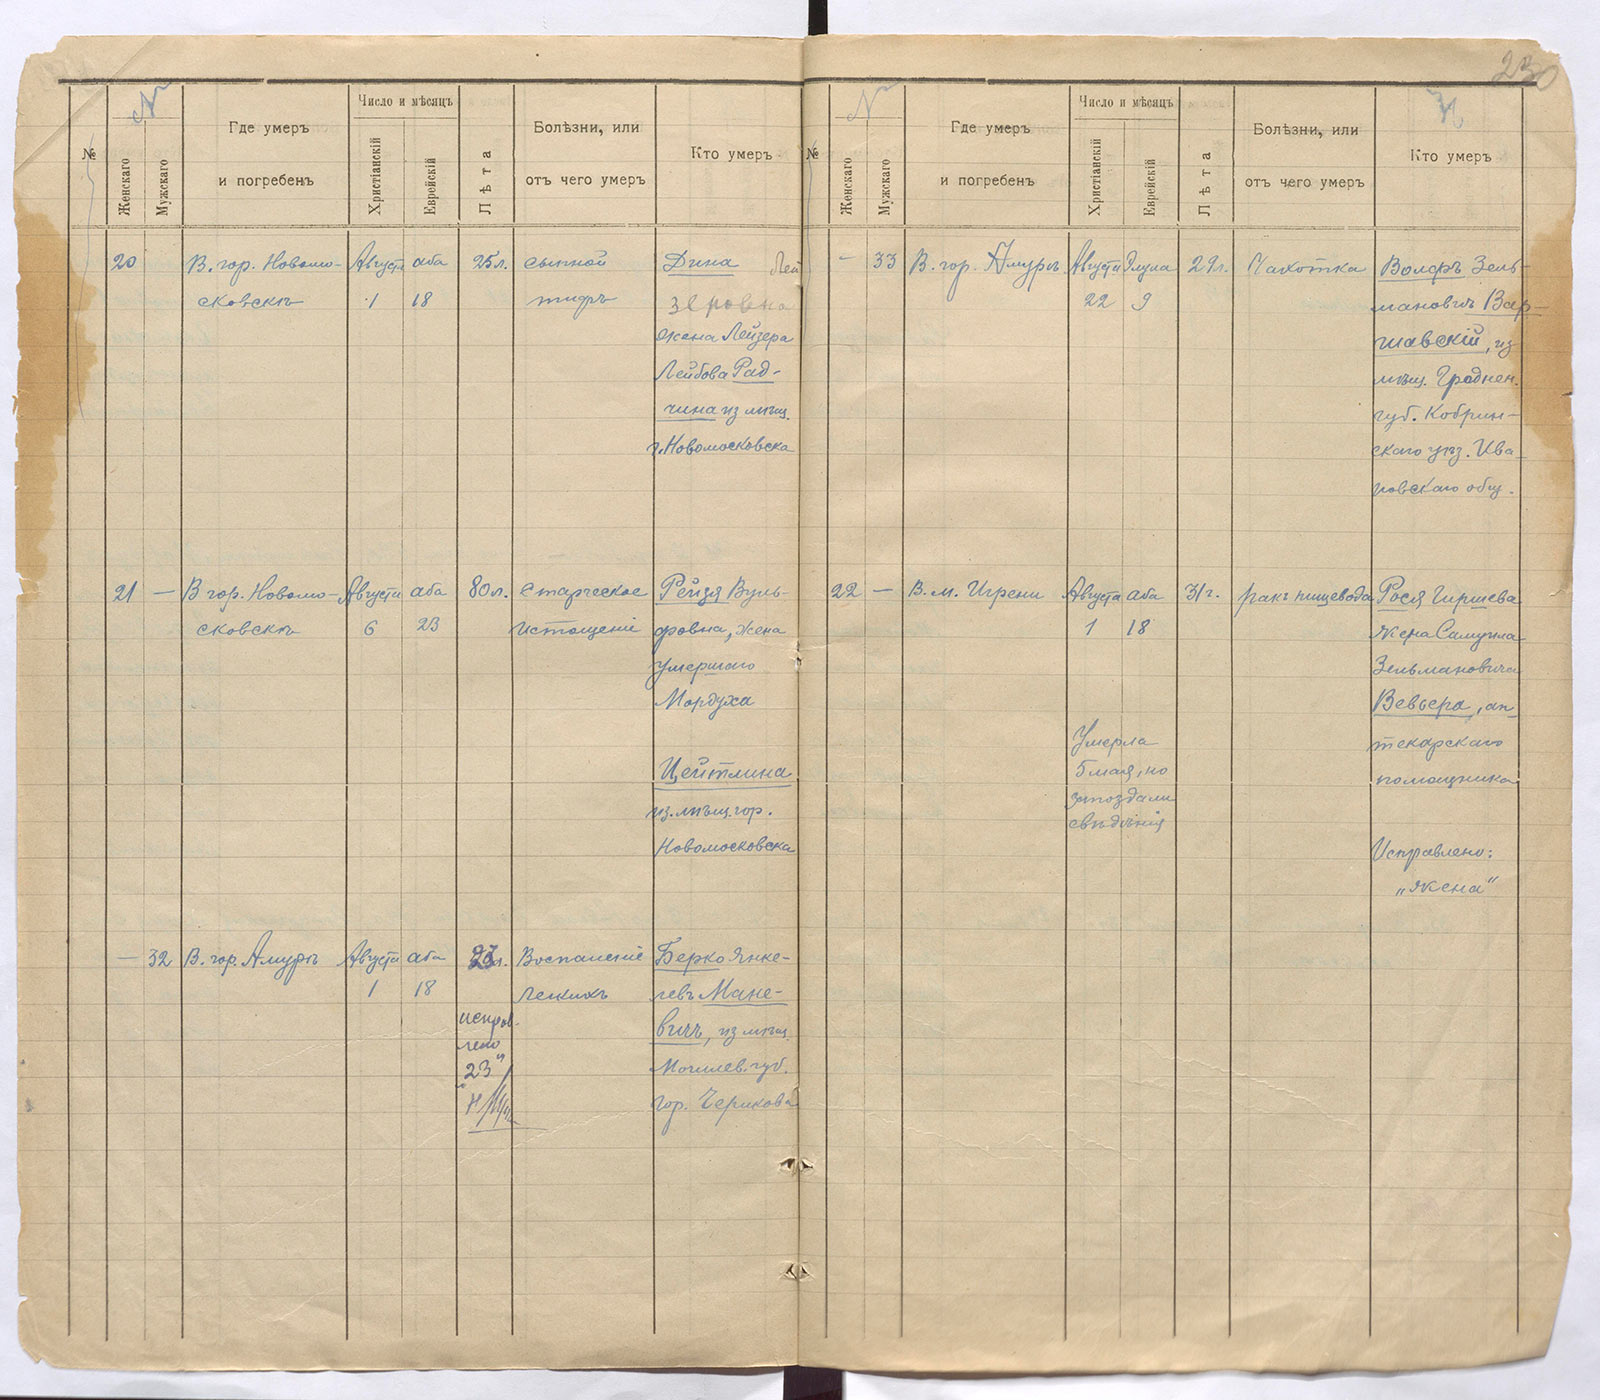 230
№
Женскаго
Мужскаго
Где умеръ
и погребенъ
Число и мѣсяцъ
Христіанскій
Еврейскій
Лѣта
Болѣзни, или
отъ чего умеръ
Кто умеръ
20
В. гор. Новомо-
сковскѣ
Августа
1
аба
18
25 л.
сыпной
тифъ
Дина Лей
зеровна
жена Лейзера
Лейбова Рад-
чина из мѣщ.
г. Новомосковска
21 —
В гор. Новомо-
сковскѣ
Августа
6
аба
23
80 л.
Старческое
истощеніе
Рейзя Вуль-
фовна, жена
умершаго
Мордуха
Цейтлина
из. мѣщ. гор.
Новомосковска
— 32
В. гор. Амурѣ
Августа
1
аба
18
23 л.
исправ-
лено
„23"
Воспаленіе
Легкихъ
Берко Янке-
левъ Мане-
вичъ, из мѣщ.
Могилев. губ.
гор. Черикова
№
Женскаго
Мужскаго
Где умеръ
и погребенъ
Число и мѣсяцъ
Христіанскій
Еврейскій
Лѣта
Болѣзни, или
отъ чего умеръ
Кто умеръ
— 33
В. гор. Амурѣ
Августа
22
Элула
9
29 л.
Чахотка
Волфъ Зель-
мановичъ Вар-
шавскій, из
мѣщ. Гроднен.
губ. Кобрин-
скаго уѣз. Ива-
новскаго общ.
22 —
В. м. Игрени
Августа
1
аба
18
Умерла
5 мая, но
запоздали
свѣдѣнія
31 г.
рак пищевода
Рося Гиршева
жена Самуила
Зельмановича
Вевьера, ап-
текарскаго
помощника
Исправлено:
„жена"